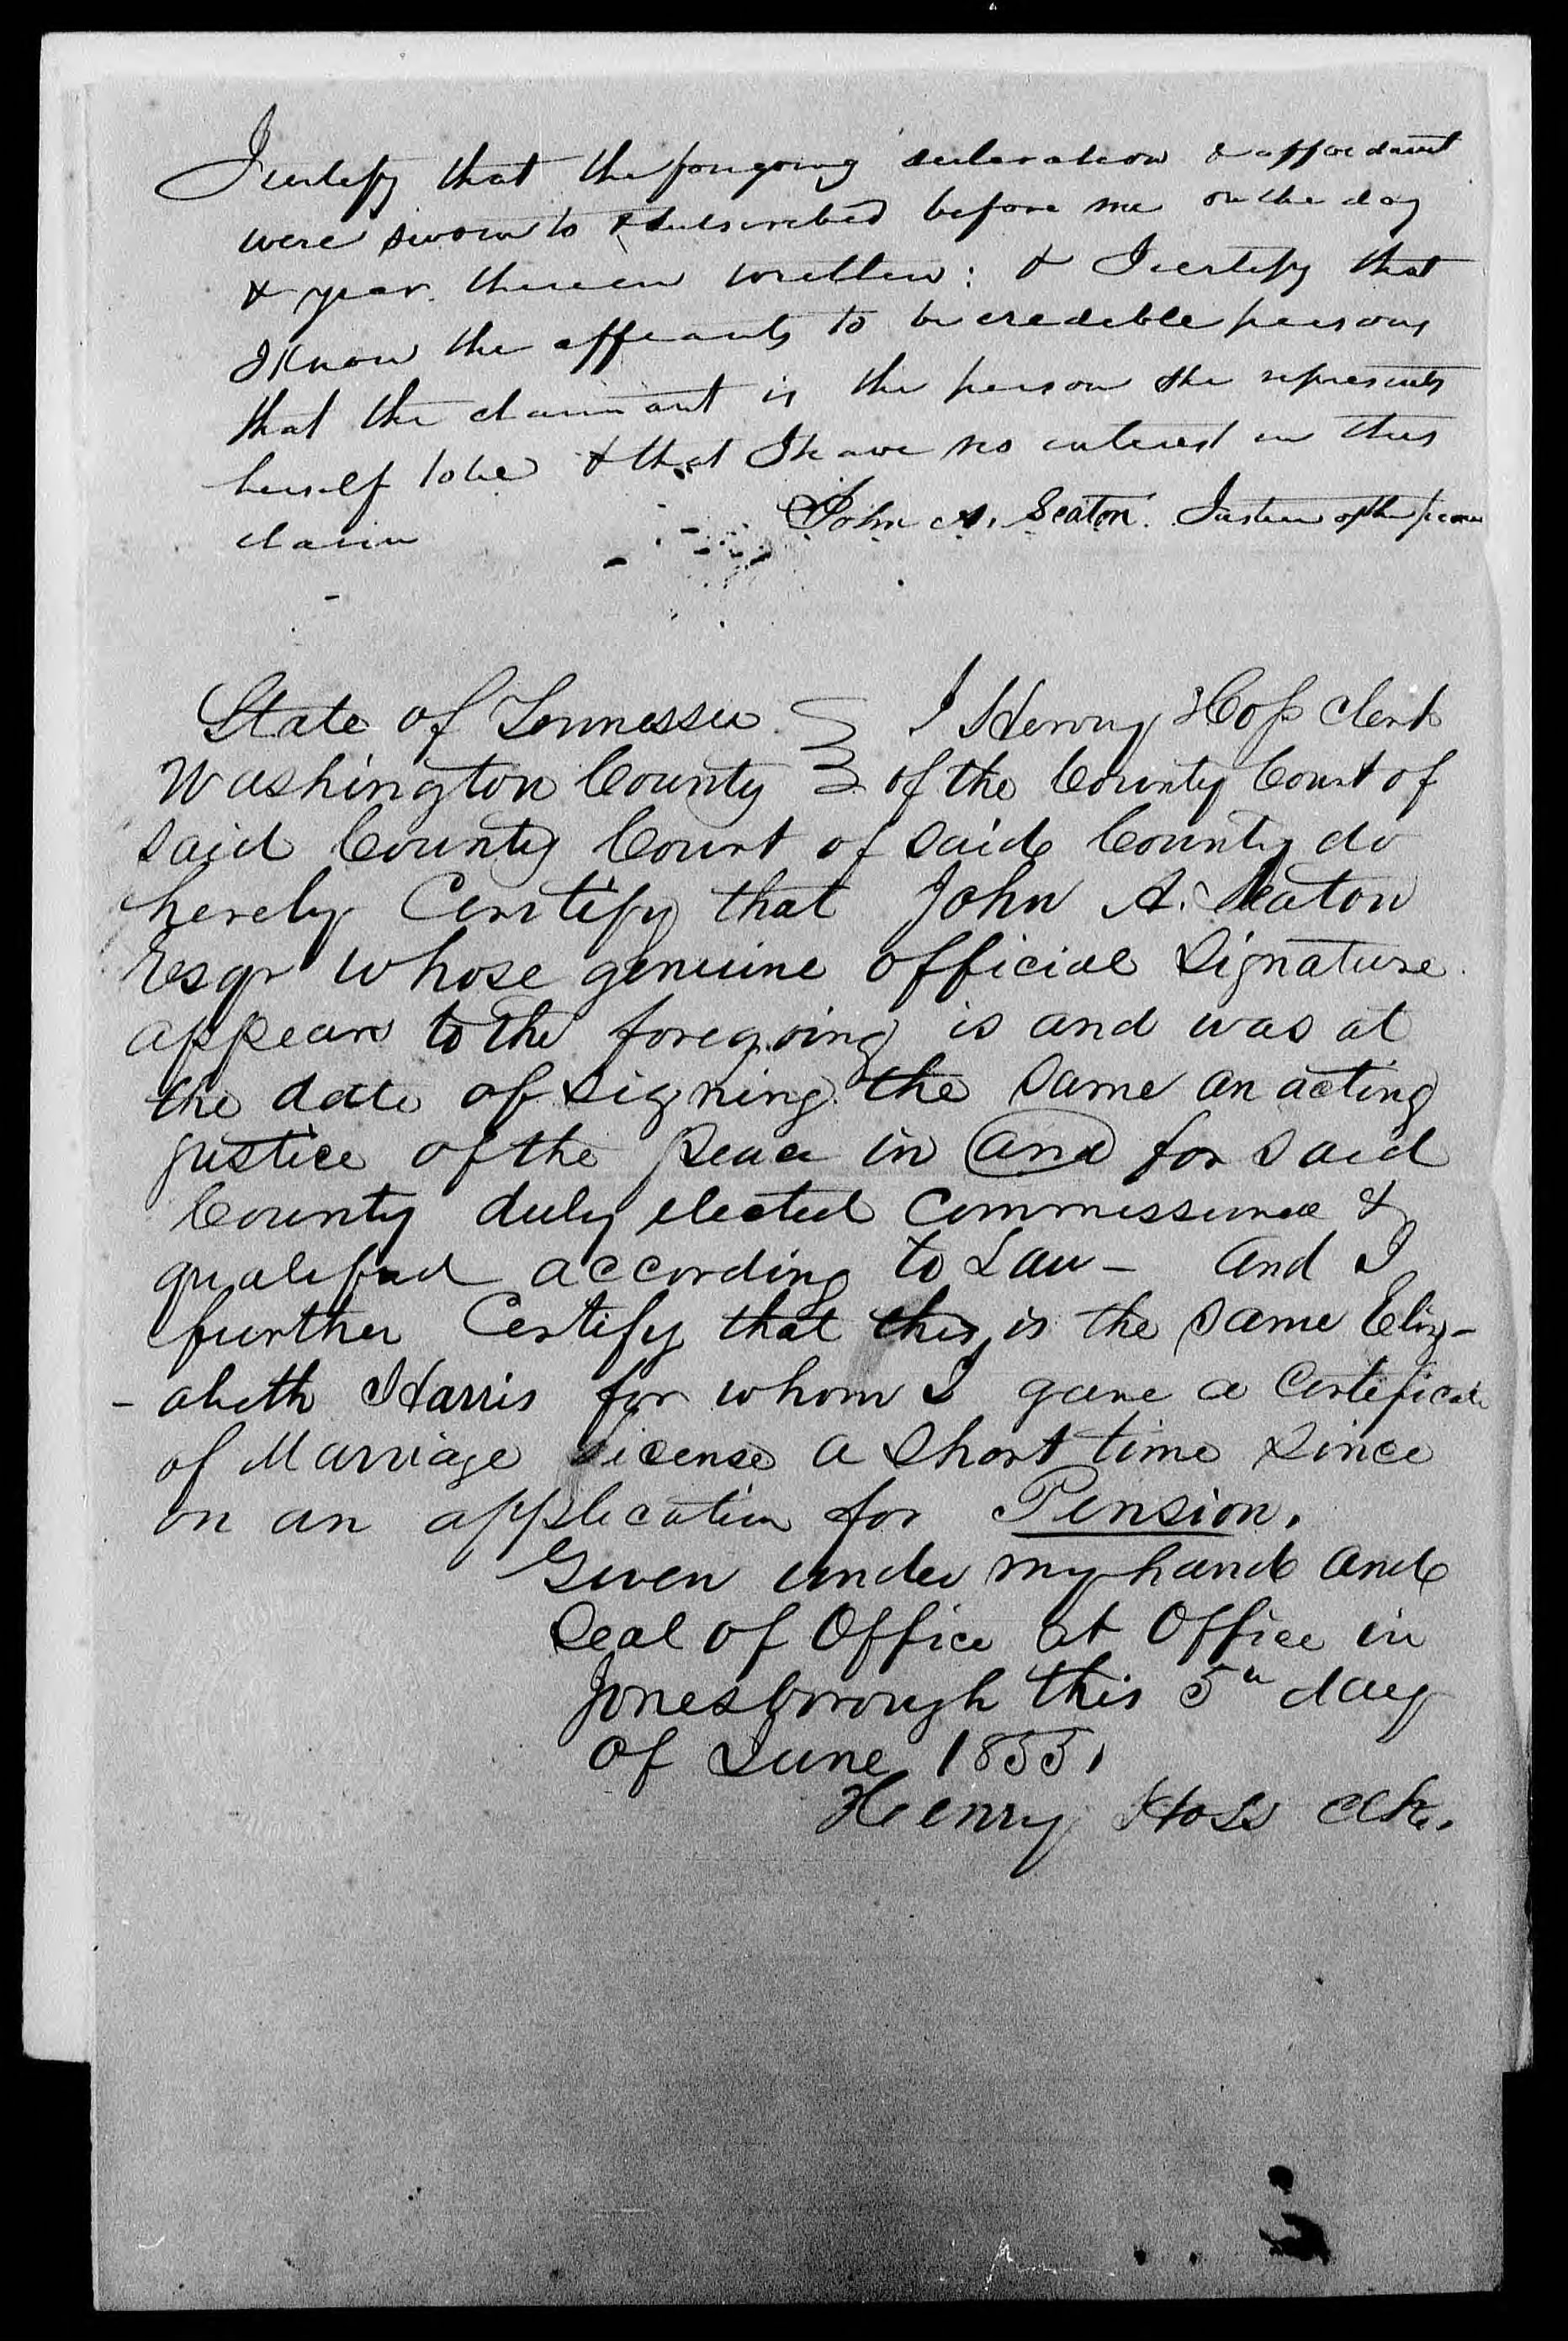 I certify that the forgoing declaration & affidavit
were sworn to & subscribed before me on the day
& year therein written: & I certify that
I Know the affiants to be credible persons
that the claimant is the person she represents
herself to be & that I have no interest in this
claim
John A. Seaton. Justice of the peace
State of Tennessee. I Henry Hoss Clerk
Washington County of the County Court of
said County Court of said County do
hereby Certify that John A. Seaton
Esqr whose genuine official Signature
appears to the foregoing is and was at
the date of signing the same an acting
justice of the peace in and for said
County duly elected Commissioned &
qualified according to Law - And I
further Certify that this is the same Eliz-
- abeth Harris for whom I gave a Certificate
of Marriage License a Short time Since
on an application for Pension.
Given under my hand and
Seal of Office at Office in
Jonesborough this 5th day
of June 1855.
Henry Hoss Clk.